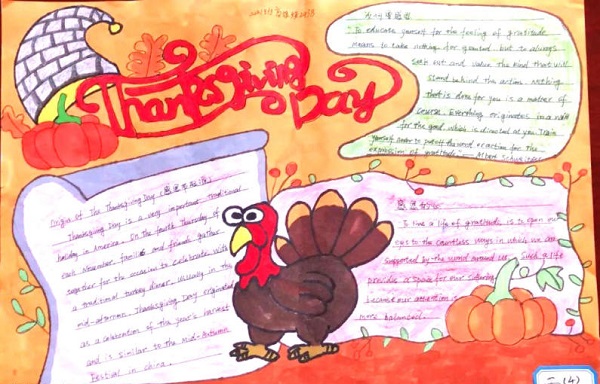 Thanksgiving Day
"To educate yourself for the feeling of gratitude
means to take nothing for granted but to always
seek out and value the kind that will
stand behind the action. nothing
that is done for you is a matter of
course. Everything originates in a
for the good which is directed at you. Train
yourself never to put off the word or action for the
expression of gratitude" — Albert
Origin of The Thanksgiving Day (感恩节起源)
Thanksgiving Day is a very important traditional
holiday in America. On the fourth Thursday of
each November, families and friends gather
together for the occasion to celebrate with
a traditional turkey dinner usually in the
mid-afternoon. Thanksgiving Day originated
as a celebration of the year's harvest
and is similar to the mid-Autumn
Festival in china.
感恩
To live a life of gratitude is to open our
eyes to the countless ways in which we are
supported by the world around us. Such a life
provides space for our suffering
because our attention is
more balanced.
二(4)